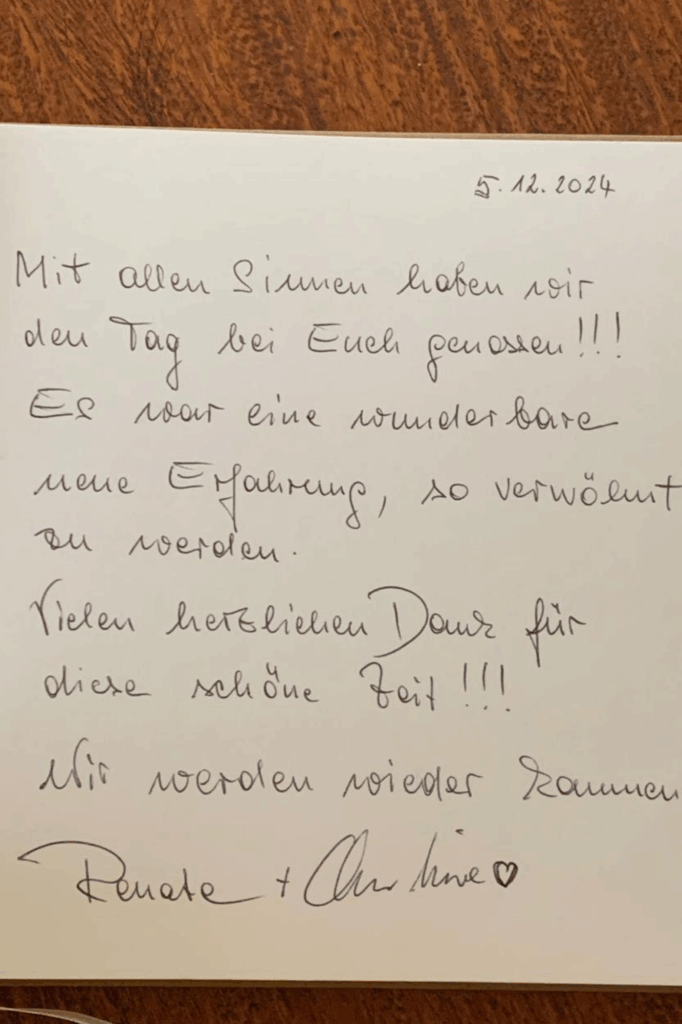 5.12.2024
Mit allen Sinnen haben wir
den Tag bei Euch genossen!!!
Es war eine wunderbare
neue Erfahrung, so verwöhnt
zu werden.
Vielen herzlichen Dank für
diese schöne Zeit!!!
Wir werden wieder kommen
Renate + Christine ♡